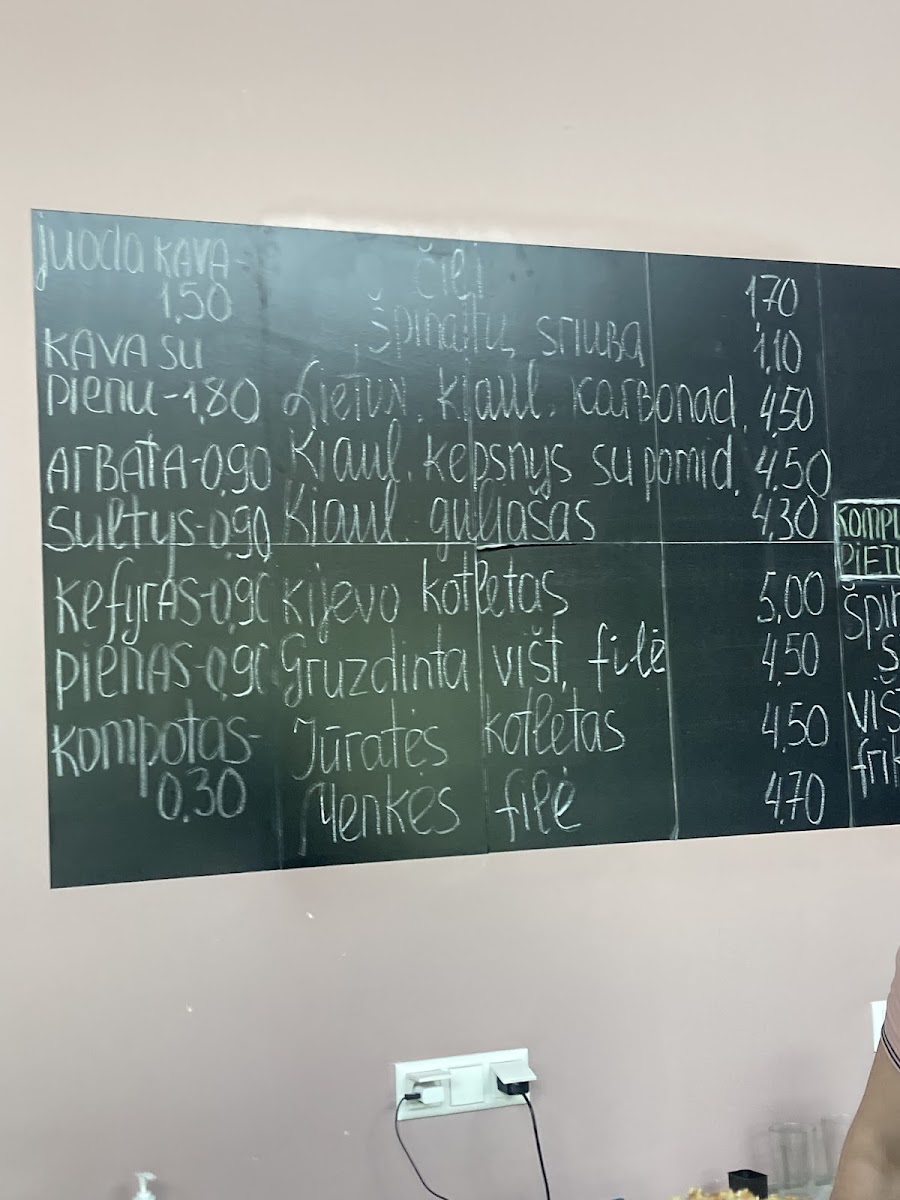 juoda KAVA-
1.50
KAVA SU
PIENU-1.80
ARBATA-0.90
SULTYS-0,90
KEFYRAS-0.90
PIENAS-0.90
Kompotas-
0.30
Čili 1,70
Špinatų sriuba 1,10
Lietuv. kiaul. karbonad. 4,50
Kiaul. kepsnys su pomid. 4,50
Kiaul. guliašas 4,30
Kijevo kotletas 5,00
Gruzdinta višt. filė 4,50
Jūratės kotletas 4,50
Menkės filė 4,70